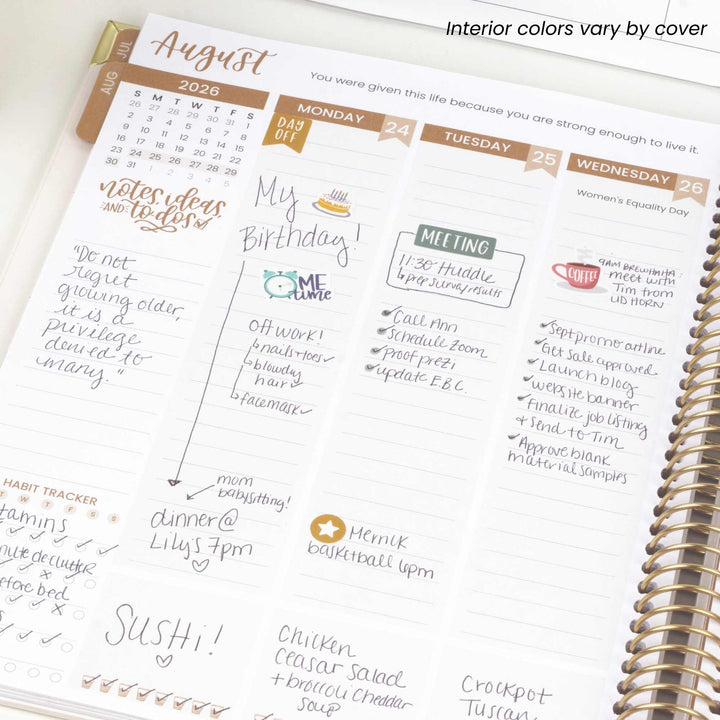 Interior colors vary by cover
JUL
AUG
August
You were given this life because you are strong enough to live it.
2026
S M T W T F S
26 27 28 29 30 31 1
2 3 4 5 6 7 8
9 10 11 12 13 14 15
16 17 18 19 20 21 22
23 24 25 26 27 28 29
30 31 1 2 3 4 5
notes, ideas,
AND to-dos
"Do not
regret
growing older,
it is a
privilege
denied to
many."
HABIT TRACKER
T W T F S S
tamins
nute declutter
efore bed
MONDAY 24
DAY
OFF
My
Birthday!
ME
time
Off work!
nails + toes
blowdry
hair
facemask
mom
babysitting!
dinner @
Lily's 7pm
SUSHI!
TUESDAY 25
MEETING
11:30 Huddle
prep survey results
Call Ann
Schedule Zoom
Proof prezi
update E.B.C.
Merrick
basketball 6pm
Chicken
Ceasar Salad
+ broccoli cheddar
soup
WEDNESDAY 26
Women's Equality Day
COFFEE
9AM BREWHAHA:
meet with
Tim from
UD HORN
Sept promo outline
Get sale approved
Launch blog
website banner
Finalize job listing
+ send to Tim
Approve blank
material samples
Crockpot
Tuscan